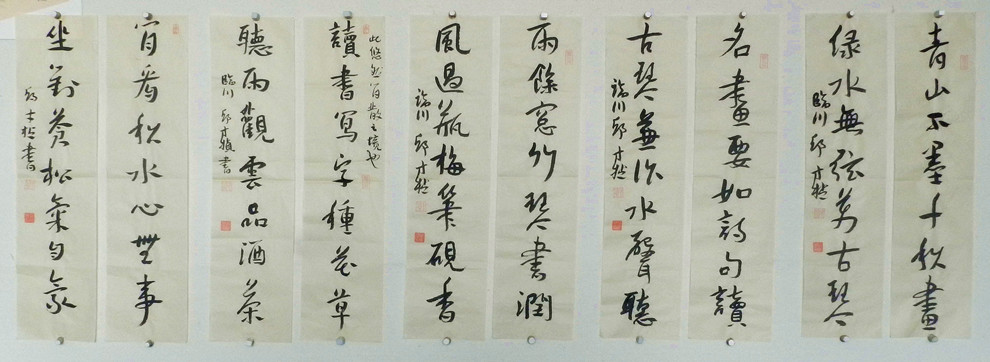 青山不墨千秋畫
绿水無弦萬古琴
臨川 邱才楨
名畫要如詩句讀
古琴兼作水聲聽
臨川 邱才楨
雨餘窓竹琴書潤
風過瓶梅筆硯香
臨川 邱才楨
此悠然閒散之境也
讀書寫字種花草
聽雨觀雲品酒茶
臨川 邱才楨書
閒看秋水心無事
坐對蒼松氣自豪
邱才楨書